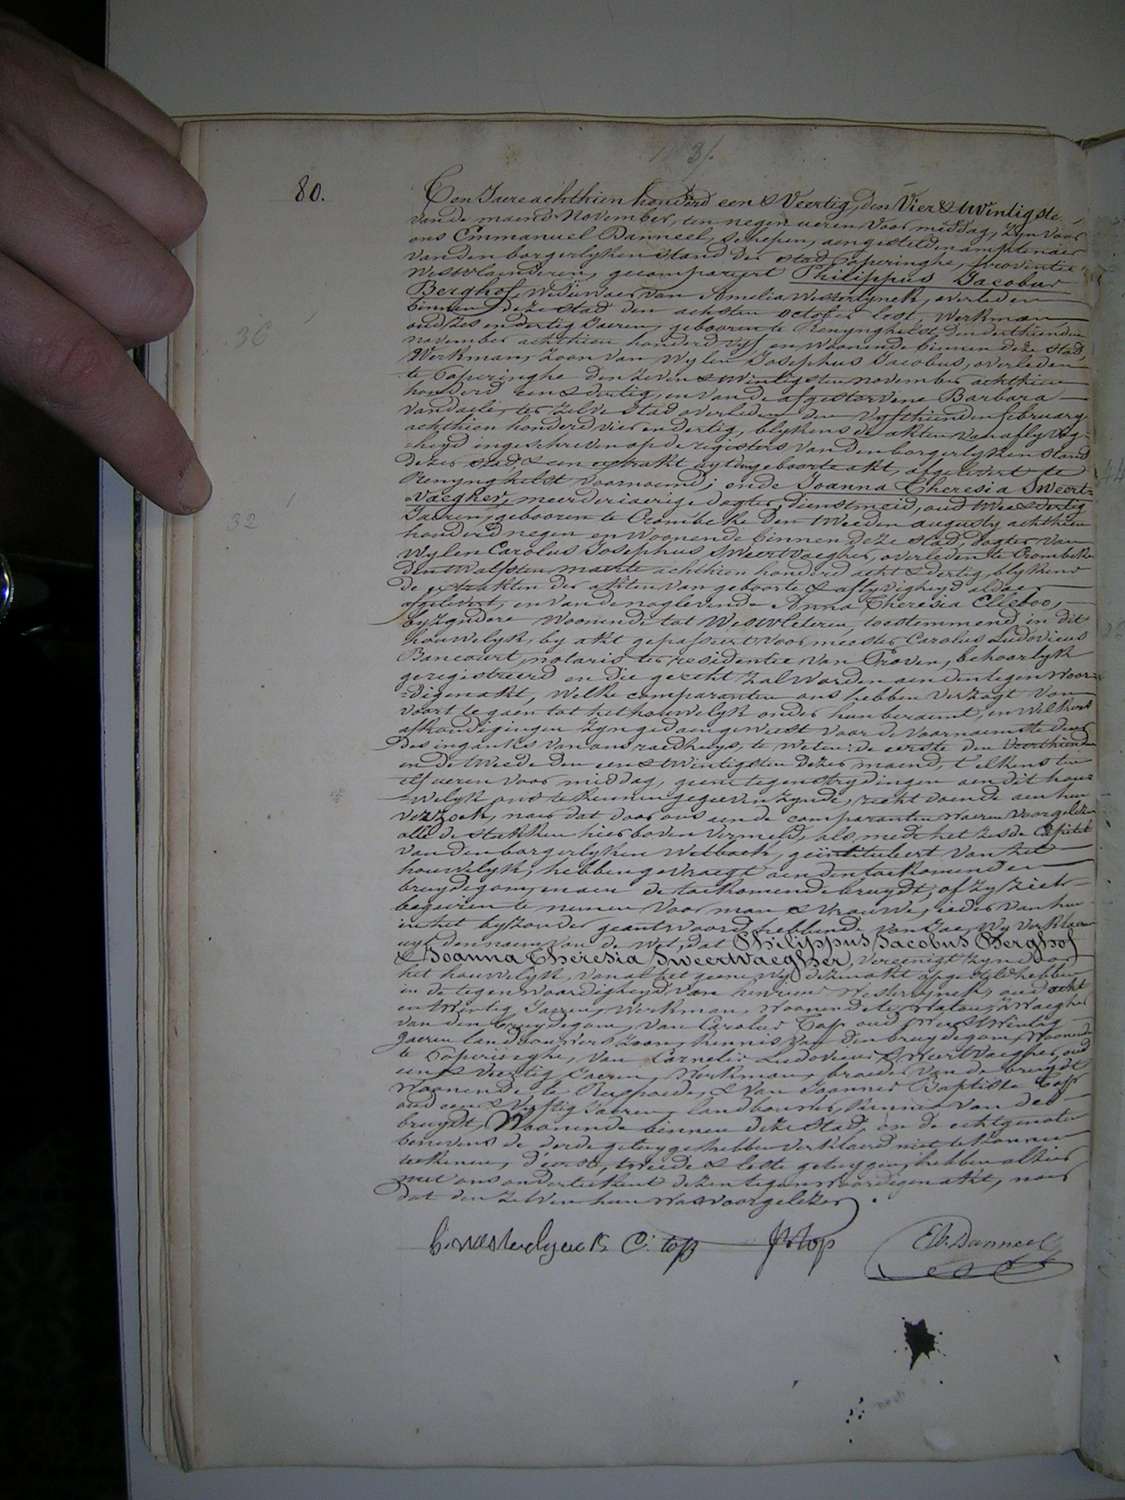 31.
80.
Ten Jaere achthien honderd een & Veertig, den Vier & twintigste
van de maend November, ten negen ueren voor middag, zyn voor
ons Emmanuel Danneel, schepen, aengestelden amptenaer
van den borgerlyken stand der stad Poperinghe, provintie
Westvlaenderen, gecompareert Philippus Jacobus
Berghof, weduwaer van Amelia Westerlynck, overleden
binnen deze stad den achsten october lest, werkman,
oud zes en dertig Jaeren, gebooren te Renynghelst, den derthienden
november achthien honderd vyf en woonende binnen deze stad,
Werkman, zoon van wylen Josephus Jacobus, overleden
te Poperinghe den zeven & twintigsten november achthien
honderd een & dertig, en van de afgestorvene Barbara
Vandaele, ter zelve stad overleden den vyfthienden february
achthien honderd vier en dertig, blykens de akten van aflyvig=
=heyd ingeschreven op de registers van den borgerlyken stand
dezer stad, & een extrakt uyt den geboorte akt, afgelevert te
Renynghelst voornoemd; ende Joanna Theresia Sweert=
=Vaegher, meerderjaerige dogter, dienstmeid, oud twee & dertig
Jaeren, gebooren te Crombeke den tweeden augusty achthien
honderd negen en woonende binnen deze stad, dogter van
Wylen Carolus Josephus Sweertvaegher, overleden te Crombeke
den twalfsten maerte achthien honderd acht & dertig, blykens
de extrakten der akten van geboorte & aflyvigheyd aldaer
afgelevert, en van de naglevende Anna Theresia Clieboo,
byzondere woonende tot Westvleteren, toestemmend in dit
houwelyk, by akt gepasseert voor meester Carolus Ludovicus
Bancourt, notaris ter residentie van Proven, behoorlyk
geregistreerd en die gezeht zal worden aen den tegenwoor=
=digen akt, welke comparanten ons hebben verzogt van
voort te gaen tot het houwelyk onder hun beraemt, en wel kers
afkondigingen zyn gedaen geweest voor de voornaemste deur
des ingankx van ons raedhuys, te weten: de eerste den veerthienden
en de tweede den een & twintigsten dezer maend, t'elkens ten
elf ueren voor middag, geene tegenstrydingen aen dit hou=
=welyk ons te kennen gegeven zynde, recht doende aen hun
verzoek, naer dat door ons aen de comparanten waeren voorgelezen
alle de stukken hierboven vermeld, als mede het zesde Capittel
van den borgerlyken wetboek, geïntituleert van het
houwelyk, hebben gevraegt aen den toekomenden
bruydegom, en aen de toekomende bruydt, of zy zich
begeiren te nemen voor man & vrouwe, ieder van hun
in het byzonder geantwoord hebbende van Jae, wy verklaeren
uyt den naem van de Wet, dat Philippus Jacobus Berghof
& Joanna Theresia Sweertvaegher, vereenigt zyn door
het houwelyk, van al het geene wy dezen akt opgestelt hebben
in de tegenwoordigheyd van Westerlynck, oud acht
en twintig Jaeren, werkman, woonende te Watou, Zwaegher
van den bruydegom, van Carolus Top oud twee & twintig
Jaeren landbouwers zoon, kennis van den bruydegom, woonende
te Poperinghe, van Cornelis Ludovicus Sweertvaegher, oud
een & veertig Jaeren, Werkman, broeder van de bruydt
woonende te Rexpoede, & van Joannes Baptiste Top
oud een & vyftig Jaeren, landbouwer, kennis van de
bruydt, Woonende binnen deze stad, en de echtgenoten
benevens de derde getuyge hebben verklaerd niet te konnen
teekenen, d'eerste, tweede & leste getuygen, hebben alhier
met ons onderteekent dezen tegenwoordigen akt, naer
dat den zelven hun was voorgelezen.
b. westerlynck C. top JB top Eb. Danneel
36
32